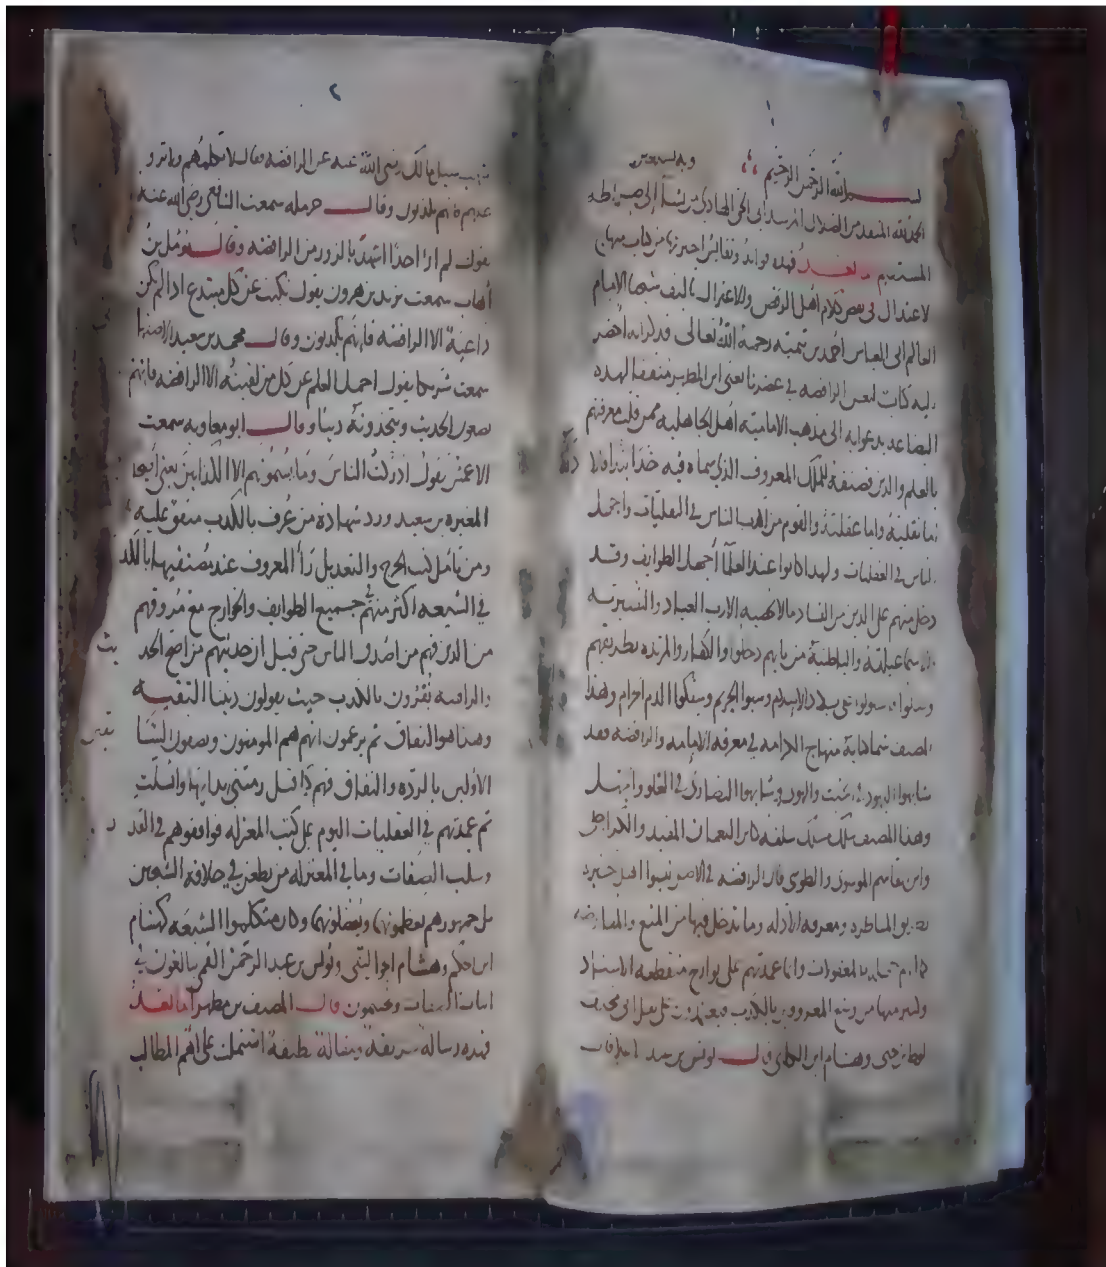 بسم الله الرحمن الرحيم وبه نستعين
الحمد لله المنقذ من الضلال المرشد الى الحق الهادي من يشآ الى صراطه
المستقيم وبعد فهذه فوايد ونفايس اخترتها من كتاب منهاج
الاعتدال في نقض كلام اهل الرفض والاعتزال تاليف شيخنا الامام
العالم ابي العباس احمد بن تيمية رحمه الله تعالى فذكر انه احضر
اليه كتاب لبعض الرافضه في عصرنا يعني ابن المطهر منفقا لهذه
البضاعه يدعوا به الى مذهب الاماميه اهل الجاهليه ممن قلت معرفتهم
بالعلم والدين فصنفه للملك المعروف الذي سماه فيه خدابنده
اما نقلية واما عقلية والقوم من اكذب الناس في النقليات واجهل
الناس في العقليات ولهذا كانوا عند العلمآ اجهل الطوايف وقد
دخل منهم على الدين من الفساد مالا يحصيه الا رب العباد والنصيريه
والاسماعيلية والباطنية من بابهم دخلوا والكفار والمرتده بطريقهم
وصلوا فاستولوا على بلاد الاسلام وسبوا الحريم وسفكوا الدم الحرام وهذا
المصنف سما كتابة منهاج الكرامه في معرفه الامامه والرافضه فقد
شابهوا اليهود في الخبث والهوى وشابهوا النصارى في الغلو والجهل
وهذا المصنف سلك مسلك سلفه كابن النعمان المفيد والكراجكي
وابي قاسم الموسوي والطوسي فان الرافضه في الاصل ليسوا اهل خبره
بطريق المناظره ومعرفه الادله وما يدخل فيها من المنع والمعارضه
كما هم جهله بالمنقولات وانما عمدتهم على تواريخ منقطعه الاسناد
وكثير منها من وضع المعروفين بالكذب فيعتمدون على نقل ابي مخنف
لوط بن يحيى وهشام ابن الكلبي قال يونس بن عبد الاعلى قال
اشهب سيل مالك رضي الله عنه عن الرافضه فقال لا تكلمهم ولا ترو
عنهم فانهم يكذبون وقال حرمله سمعت الشافعي رضي الله عنه
يقول لم ار احدا اشهد بالزور من الرافضه وقال مومل بن
اهاب سمعت يزيد بن هرون يقول يكتب عن كل مبتدع اذا لم يكن
داعية الا الرافضه فانهم يكذبون وقال محمد بن سعيد الاصفهاني
سمعت شريكا يقول احمل العلم عن كل من لقيته الا الرافضه فانهم
يضعون الحديث ويتخذونه دينا وقال ابو معاويه سمعت
الاعمش يقول ادركت الناس وما يسمونهم الا الكذابين يعني اصحاب
المغيره بن سعيد ورد شهادة من عرف بالكذب متفق عليه
ومن تامل كتب الجرح والتعديل رأ المعروف عند مصنفيها بالكذب
في الشيعه اكثر منهم في جميع الطوايف والخوارج مع مروقهم
من الدين فهم من اصدق الناس حتى قيل ان حديثهم من اصح الحديث
والرافضه يقرون بالكذب حيث يقولون ديننا التقيه
وهذا هو النفاق ثم يزعمون انهم هم المومنون ويصفون السابقين
الاولين بالردة والنفاق فهم كما قيل رمتني بدايها وانسلت
ثم عمدتهم في العقليات اليوم على كتب المعتزله فوافقوهم في القدر
وسلب الصفات وما في المعتزله من يطعن في خلافة الشيخين
بل جمهورهم يعظمونهما ويفضلونهما وكان متكلموا الشيعه كهشام
ابن الحكم وهشام الجواليقي ويونس بن عبد الرحمن القمي يبالغون في
اثبات الصفات ويجسمون قال المصنف بن مطهر اما بعد
فهذه رسالة شريفه ومقالة لطيفة اشتملت على اهم المطالب